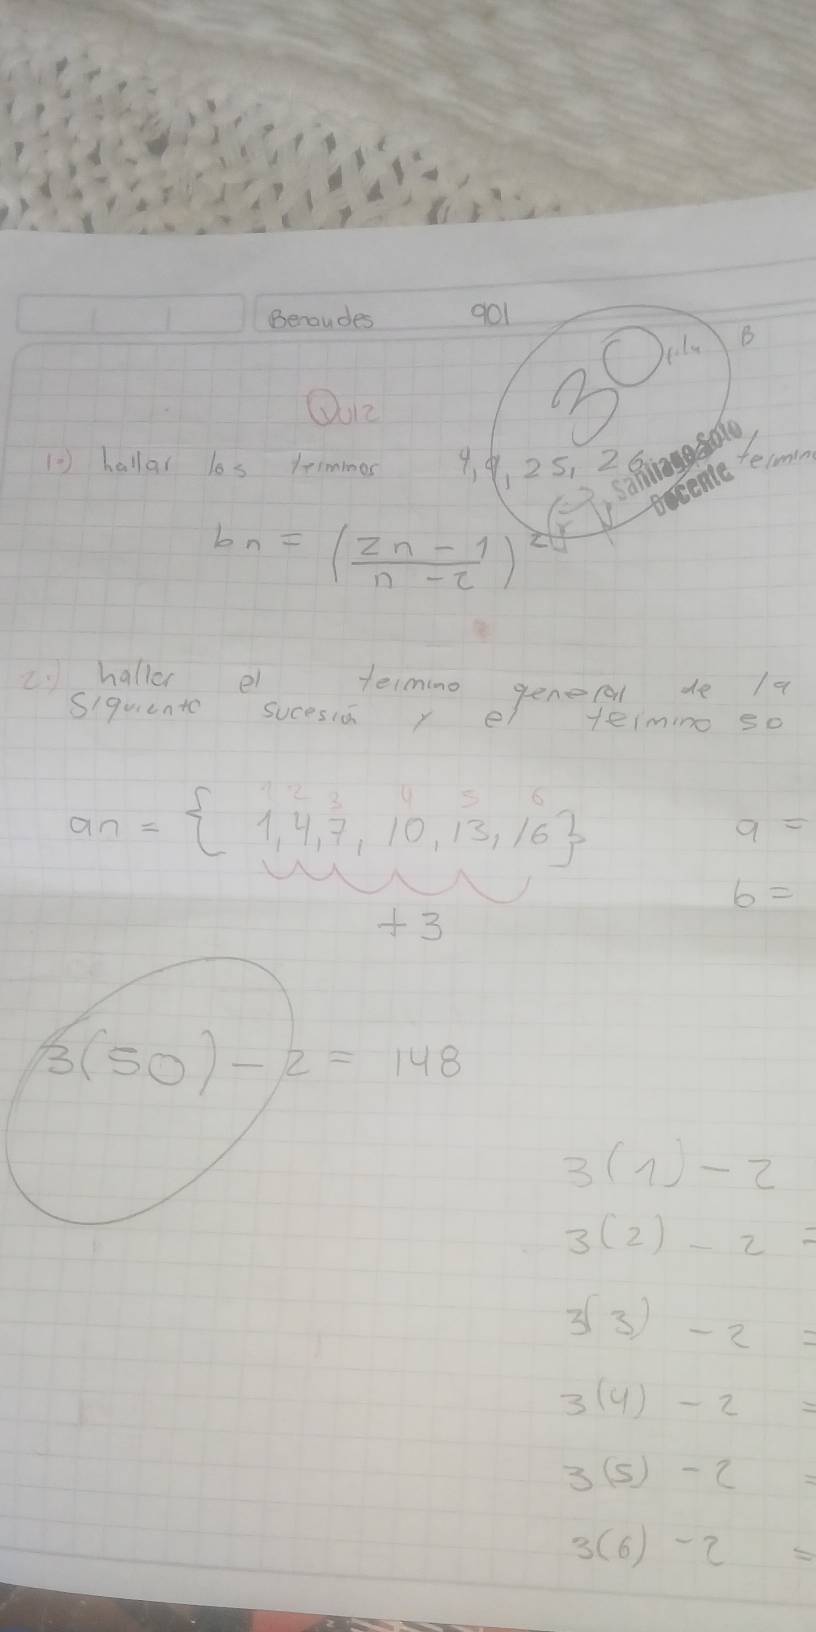 Benaudes 901
30 B
Quiz
1.) hallar los terminos 4, 9, 25, 26 termin
Santiago Soto
Docente
bn = (2n - 1 / n - 2)²
2.) haller el termino general de la
Siguiente sucesión y el termino 50
1 2 3 4 5 6
an = { 1, 4, 7, 10, 13, 16 } a =
b =
+3
3(50) - 2 = 148
3(1) - 2
3(2) - 2 =
3(3) - 2 =
3(4) - 2 =
3(5) - 2 =
3(6) - 2 =